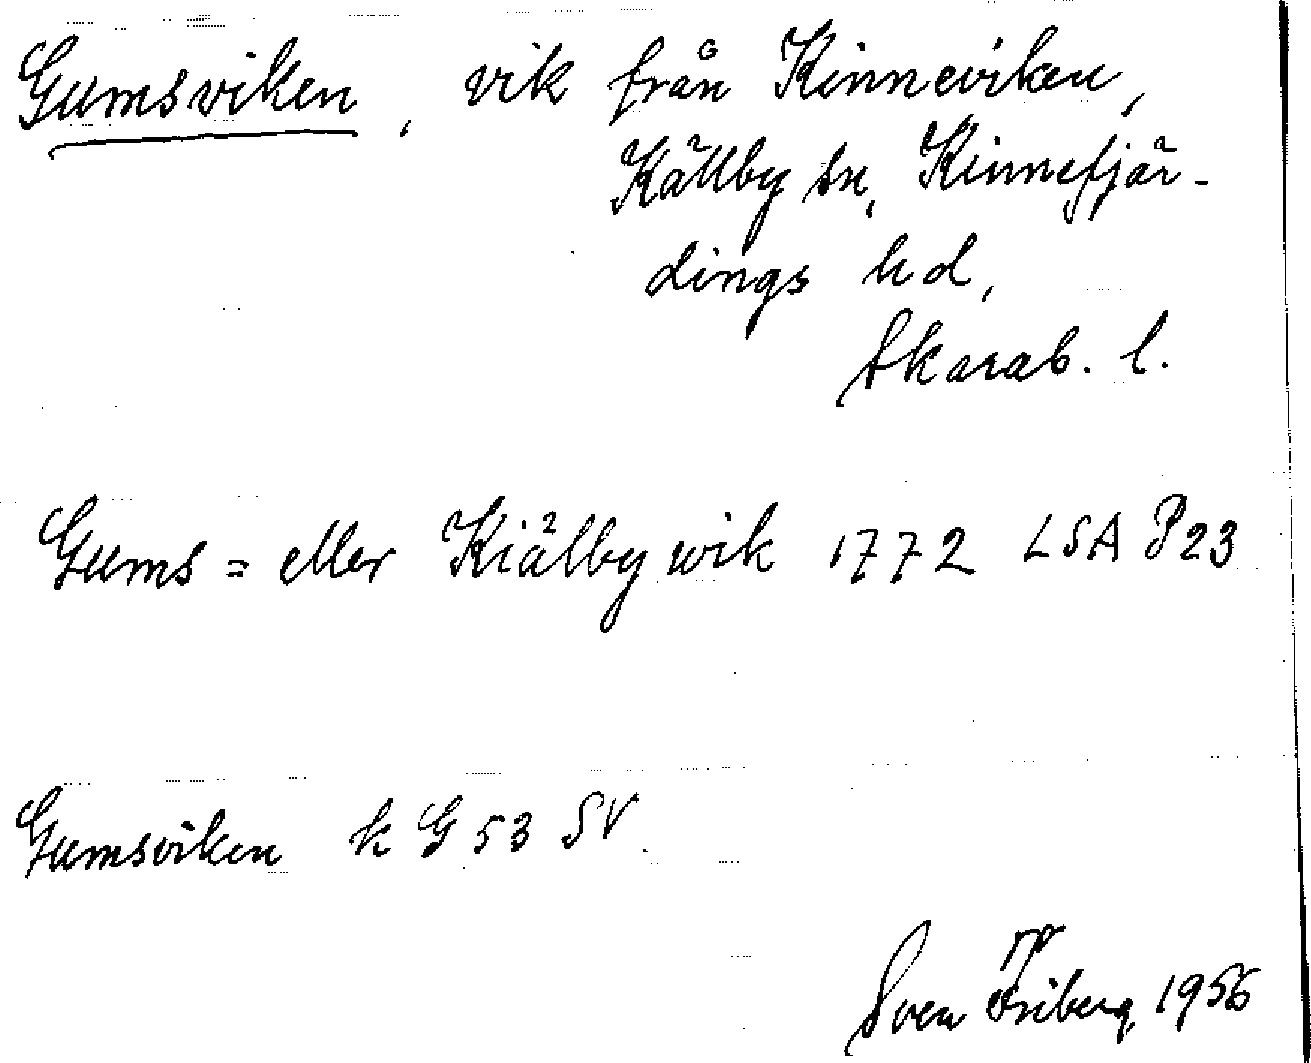 Gumsviken, vik från Kinneviken,
Källby sn, Kinnefjär-
dings hd,
Skarab. l.
Gums= eller Kiälby wik 1772 LSA P23
Gumsviken k G 53 SV
Sven Friberg 1956